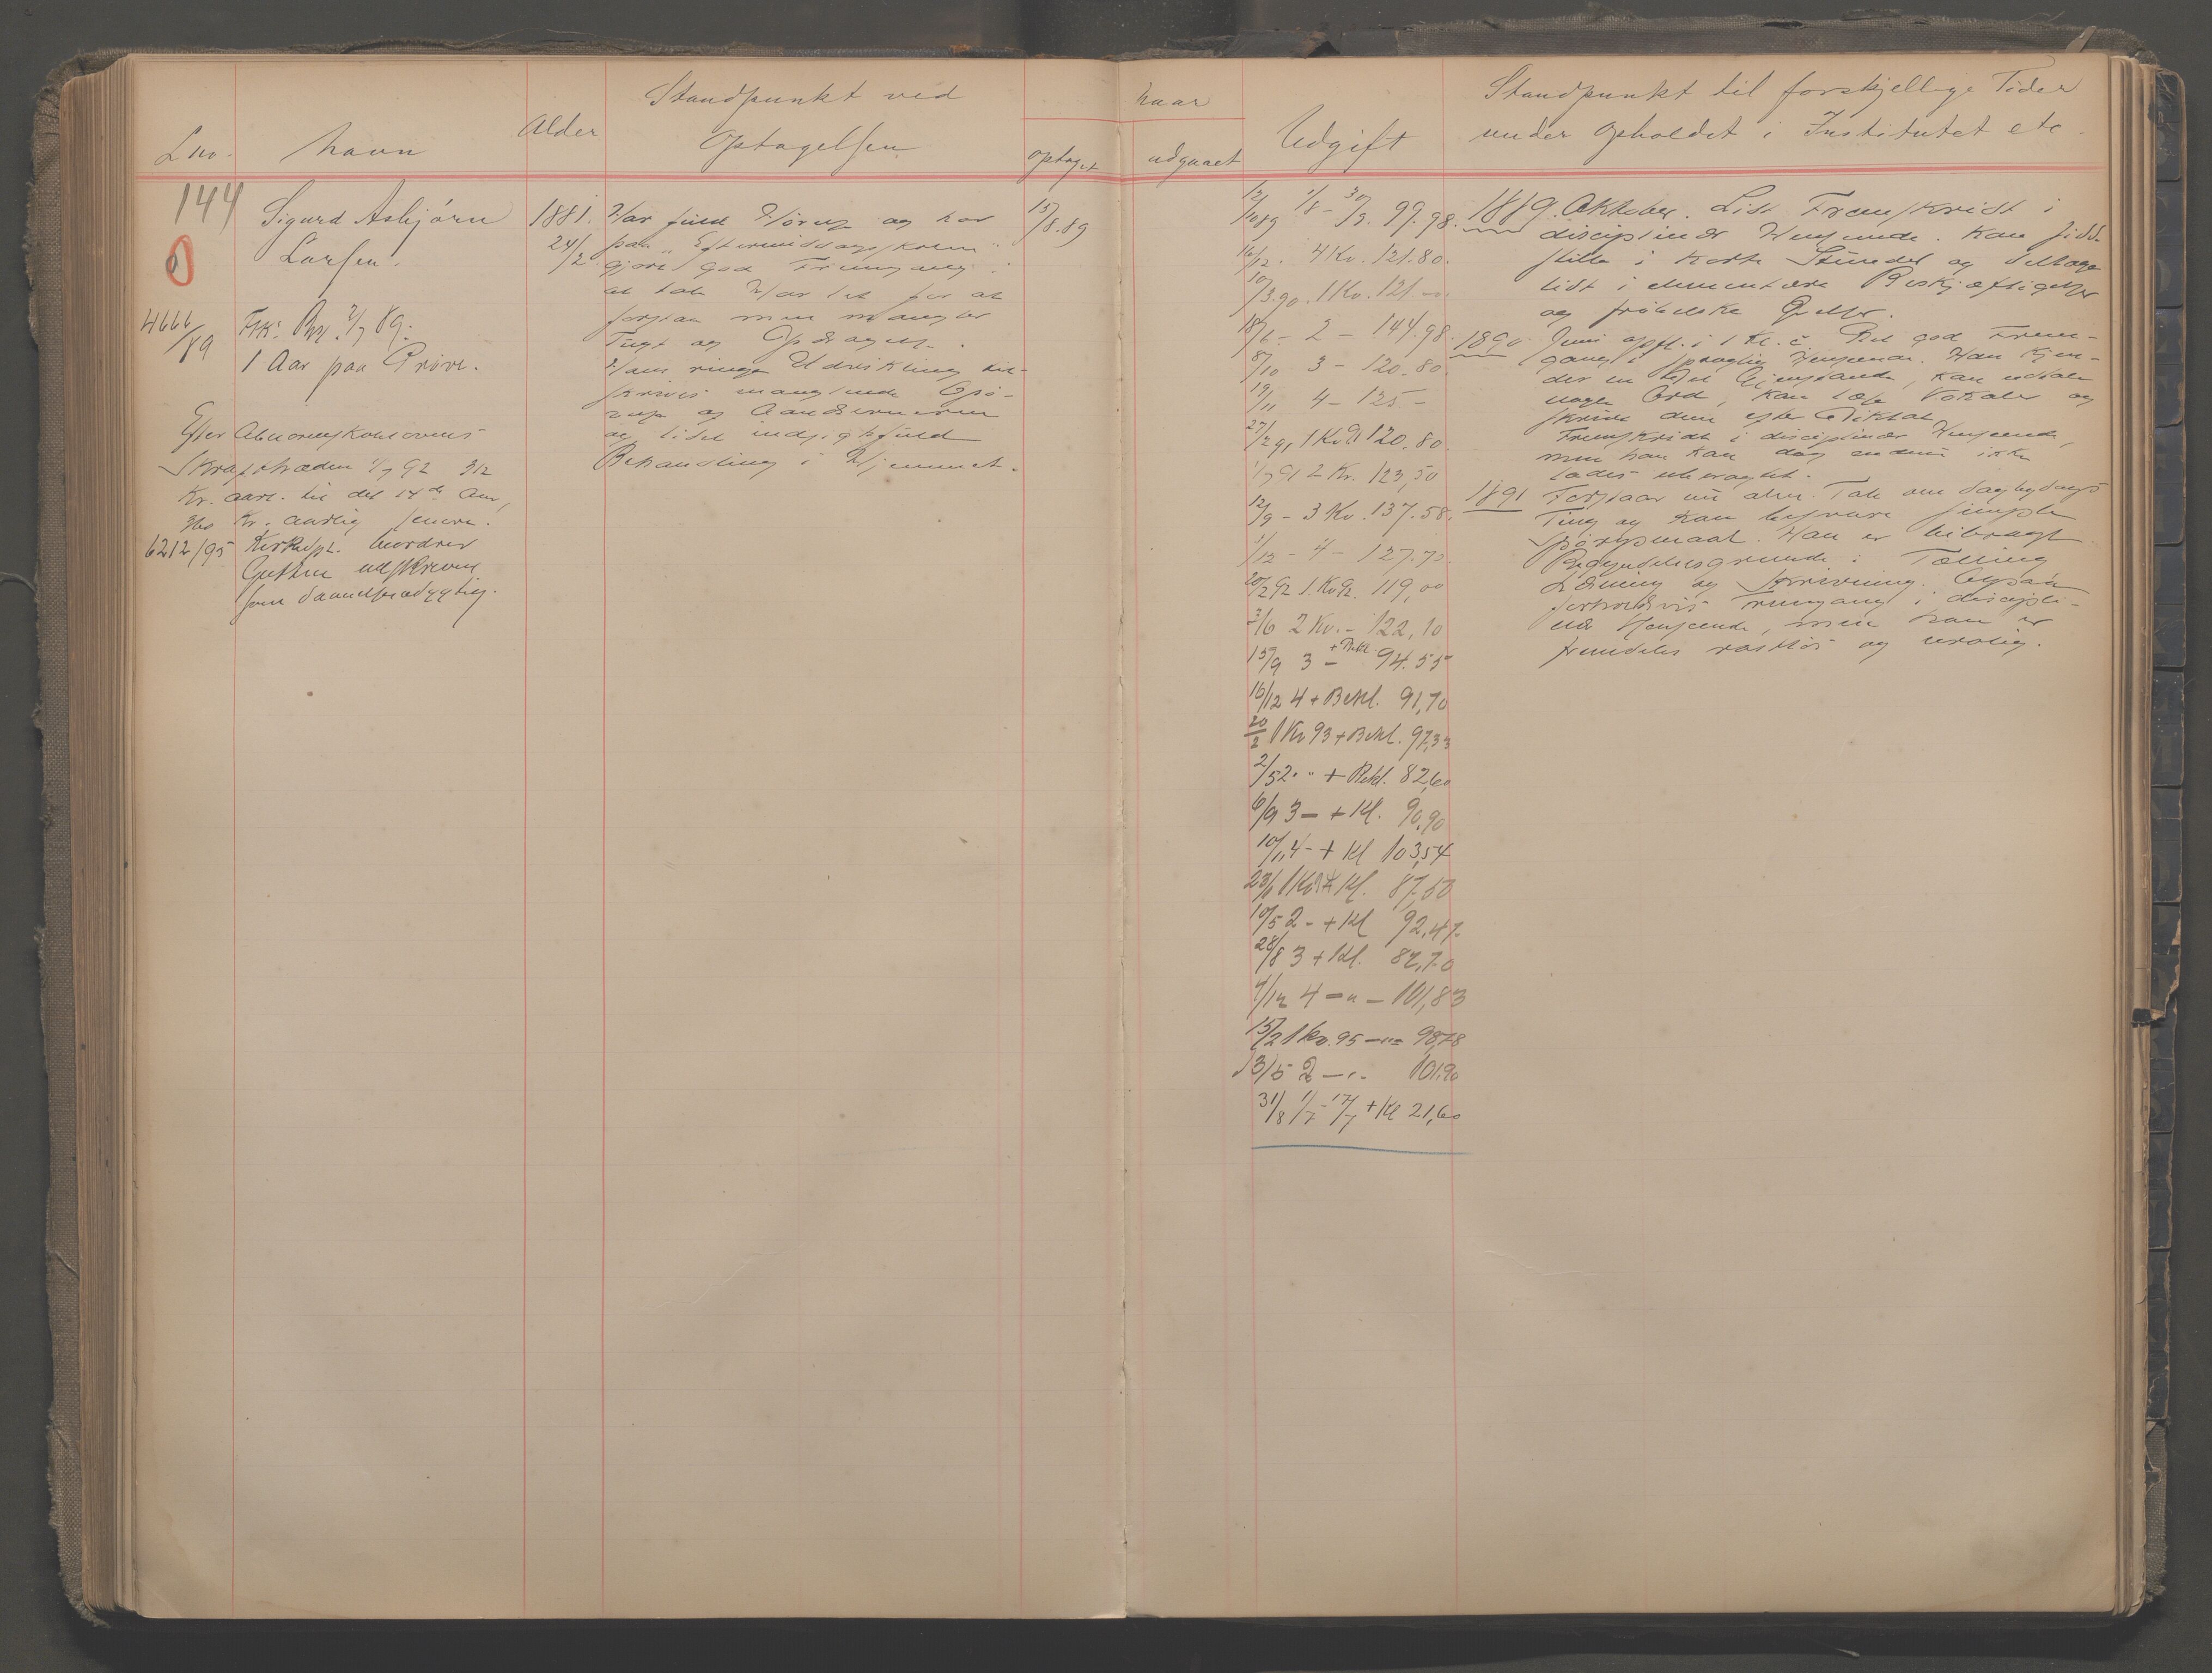 Lno.
Navn
Alder
Standpunkt ved
Optagelsen
naar
optaget
udgaaet
Udgift
Standpunkt til forskjellige Tider
under Opholdet i Institutet etc.
144
0
Sigurd Asbjörn
Larsen.
4666/89
1 Aar paa Pröve.
Efter Abnormskolelovens
Ikrafttræden 1/7 92 312
Kr. aarl. til det 14de Aar,
360 Kr. aarlig senere.
6212/95 Kirkedpt. beordrer
Gutten udskreven
som daanelsesdygtig.
1881.
24/2
Har fuld Hörelse og har
paa "Eftermiddagsskolen"
gjort god Fremgang i
at tale. Har let for at
forstaa men mangler
Tugt og Opdragelse.
Hans ringe Udvikling til-
skrives manglende
og
og lidet indsigtsfuld
Behandling i Hjemmet.
15/8.89
12/10 89 1/8 - 30/9. 99.98.
16/12. 4 Kv. 121.80.
10/3.90. 1 Kv. 121 -
18/6 - 2 - 144.98.
8/10 3 - 120.80.
19/11 4 - 125 -
27/2 91 1 Kv 91 120.80.
1/7 91 2 Kv. 123,50
12/9 - 3 Kv. 137.58.
1/12 - 4 - 127.75.
20/2 92 1. Kv 92. 119,00
3/6 2 Kv. - 122,10
15/9 3 - + Bekl. 94.55
16/12 4 + Bekl. 91,70
20/2 1 Kv 93 + Bekl. 97,33
2/5 2 " + Bekl. 82,60
6/9 3 - + Kl. 90,90
10/11 4 - + Kl 103,54
1 Kv + Kl. 87,50
10/5 2 - + Kl 92,47
28/8 3 + Kl. 82,70
4/12 4 - " - 101,83
15/2 1 kv. 95 - " - 98,78
13/5 2 - " - 101,90
31/8 1/7 - 17/7 + Kl 21,60
1889. Oktober. Lidt Fremskridt i
disciplinær Henseende. Kan sidde
stille i korte Stunder og deltage
lidt i elementære Beskjæftigelser
og fröbelske
1890 Juni opfl. i 1 Kl. c. Ret god Frem-
gang i sproglig Henseende. Han kjen-
der en Del Gjenstande, kan udtale
nogle Ord, kan læse Vokaler og
skrive dem efter Diktat.
Fremskridt i disciplinær Henseende,
men han kan dog endnu ikke
lades ubevogtet.
1891 Forstaar nu alm. Tale om dagligdags
Ting og kan besvare simple
Spörgsmaal. Han er bibragt
Begyndelsesgrunde i Tælling
Læsning og Skrivning. Ogsaa
forholdsvis Fremgang i discipli-
nær Henseende, men han er
fremdeles rastlös og urolig.